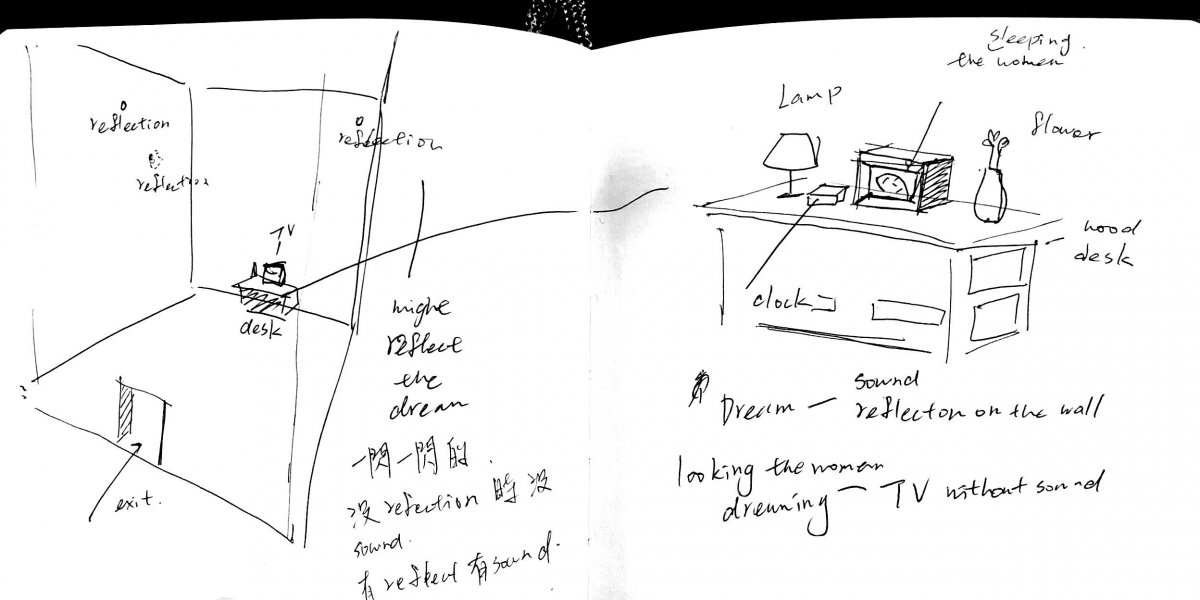 reflection
reflection
reflection
TV
desk
exit.
mighe
reflect
the
dream
一閃一閃的.
沒 refection 時沒
sound.
有 reflect 有 sound.
sleeping.
the women
Lamp
flower
wood
desk
clock
Dream — sound
reflecton on the wall
looking the woman
dreaming — TV without sound